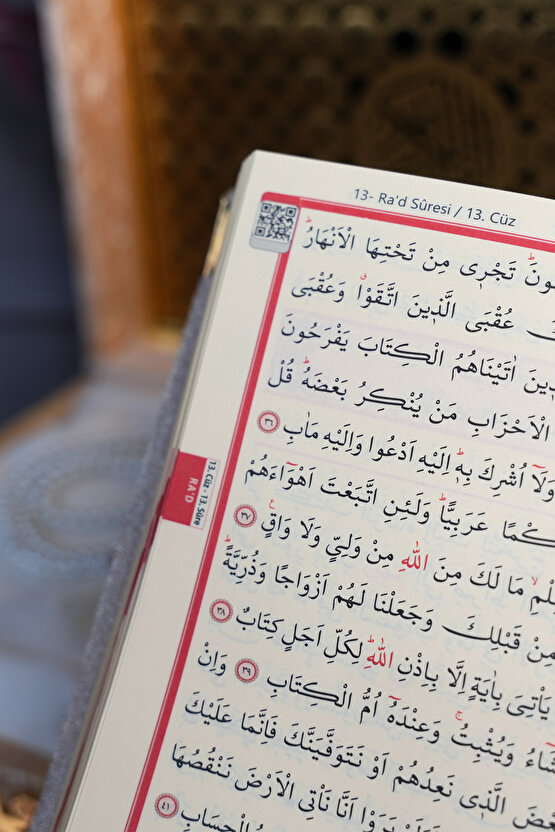 13- Ra'd Sûresi / 13. Cüz
تَجْر۪ي مِنْ تَحْتِهَا الْاَنْهَارُۜ
عُقْبَى الَّذ۪ينَ اتَّقَوْاۗ وَعُقْبَى
اٰتَيْنَاهُمُ الْكِتَابَ يَفْرَحُونَ
الْاَحْزَابِ مَنْ يُنْكِرُ بَعْضَهُۜ قُلْ
وَلَٓا اُشْرِكَ بِه۪ۜ اِلَيْهِ اَدْعُوا وَاِلَيْهِ مَاٰبِ ٣٦
عَرَبِيًّاۜ وَلَئِنِ اتَّبَعْتَ اَهْوَٓاءَهُمْ
مَا لَكَ مِنَ اللّٰهِ مِنْ وَلِيٍّ وَلَا وَاقٍ۟ ٣٧
مِنْ قَبْلِكَ وَجَعَلْنَا لَهُمْ اَزْوَاجًا وَذُرِّيَّةًۜ
يَأْتِيَ بِاٰيَةٍ اِلَّا بِاِذْنِ اللّٰهِۜ لِكُلِّ اَجَلٍ كِتَابٌ ٣٨
وَيُثْبِتُۚ وَعِنْدَهُٓ اُمُّ الْكِتَابِ ٣٩ وَاِنْ
الَّذ۪ي نَعِدُهُمْ اَوْ نَتَوَفَّيَنَّكَ فَاِنَّمَا عَلَيْكَ
يَرَوْا اَنَّا نَأْتِي الْاَرْضَ نَنْقُصُهَا
الْحِسَابِ ٤١
13. Cüz - 13. Sûre
RA'D